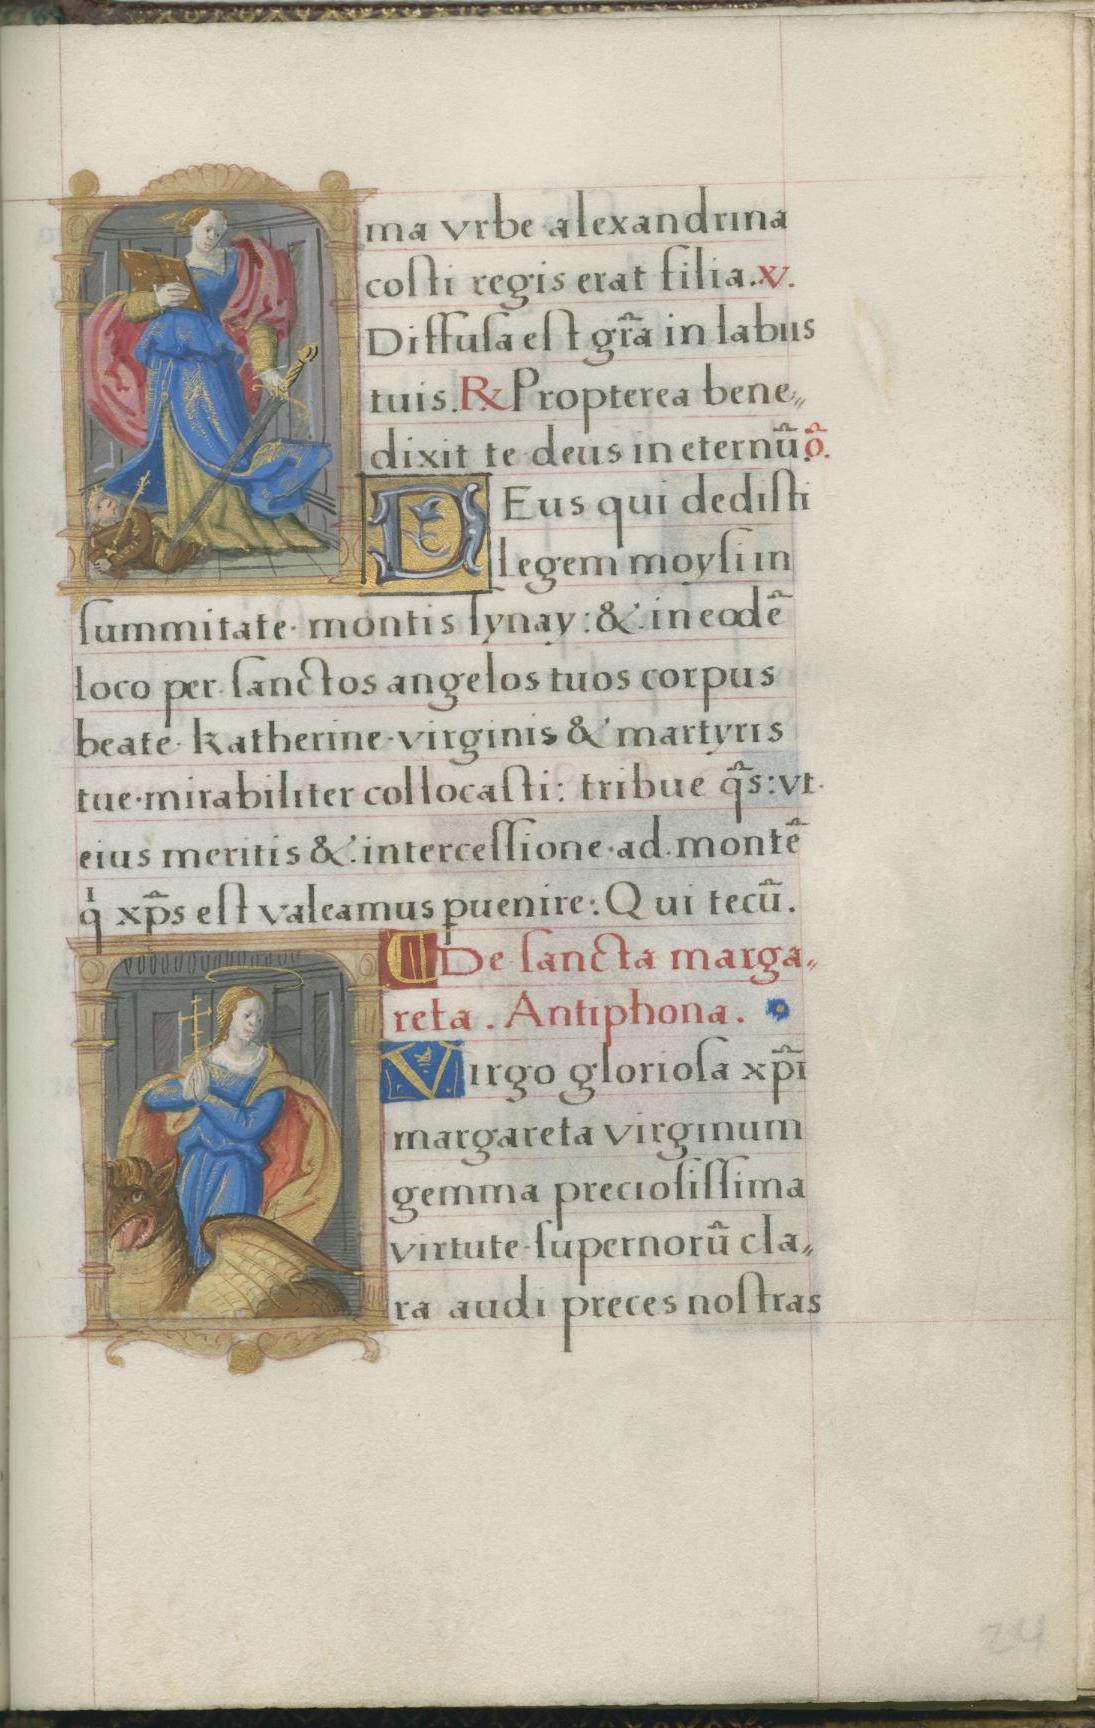 ma vrbe alexandrina
coſti regis erat filia. v.
Diffuſa eſt gr̃a in labiis
tuis. ℞ Propterea bene„
dixit te deus in eternũ. õ.
DEus qui dediſti
legem moyſi in
ſummitate montis ſynay: & in eodẽ
loco per ſanctos angelos tuos corpus
beate katherine virginis & martyris
tue mirabiliter collocaſti: tribue q̃s: vt
eius meritis & interceſſione ad montẽ
qⁱ xp̃s eſt valeamus puenire: Qui tecũ.
¶ De ſancta marga„
reta. Antiphona.
Virgo glorioſa xp̃i
margareta virginum
gemma precioſiſſima
virtute ſupernorũ cla„
ra audi preces noſtras
24